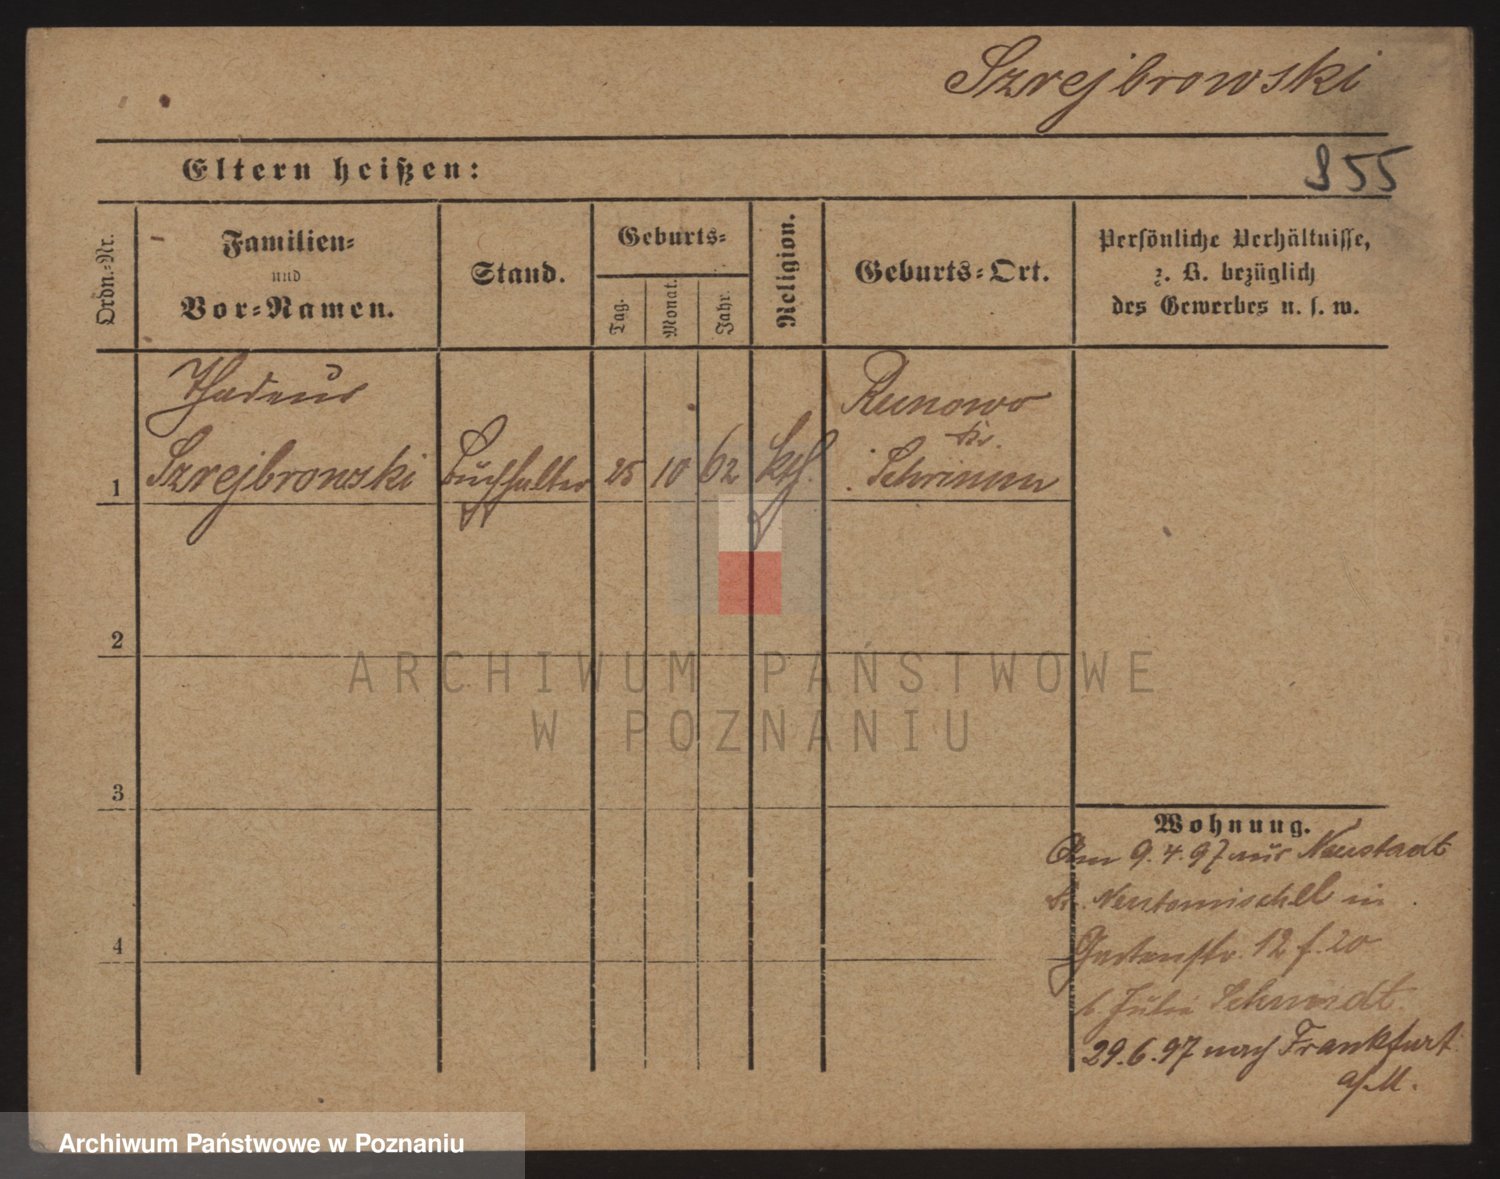 Szrejbrowski
Eltern heißen:
355
Ordn.-Nr.
Familien-
und
Vor-Namen.
Stand.
Geburts-
Tag.
Monat.
Jahr.
Religion.
Geburts-Ort.
Persönliche Verhältnisse,
z. B. bezüglich
des Gewerbes u. s. w.
Thadeus
Szrejbrowski
Buchhalter
25
10
62
kth.
Runowo
Kr.
Schrimm
1
2
3
4
ARCHIWUM PAŃSTWOWE
W POZNANIU
Wohnung.
Am 9.4.97 aus Neustadt
Kr. Neutomischel in
Gartenstr. 12 f. 20
b. Julie Schmidt.
29.6.97 nach Frankfurt
a/M.
Archiwum Państwowe w Poznaniu